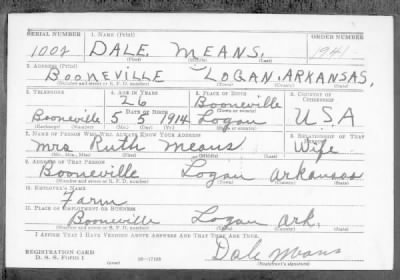 SERIAL NUMBER 1. NAME (Print) ORDER NUMBER
1002 DALE MEANS. 1941
(First) (Middle) (Last)
2. ADDRESS (Print)
BOONEVILLE LOGAN, ARKANSAS.
(Number and street or R. F. D. number) (Town) (County) (State)
3. TELEPHONE 4. AGE IN YEARS 5. PLACE OF BIRTH 6. COUNTRY OF CITIZENSHIP
26 Booneville
DATE OF BIRTH (Town or county)
Booneville 5 1914 Logan USA
(Exchange) (Number) (Mo.) (Day) (Yr.) (State or country)
7. NAME OF PERSON WHO WILL ALWAYS KNOW YOUR ADDRESS 8. RELATIONSHIP OF THAT PERSON
Mrs Ruth Means Wife
(Mr., Mrs., Miss) (First) (Middle) (Last)
9. ADDRESS OF THAT PERSON
Booneville Logan Arkansas
(Number and street or R. F. D. number) (Town) (County) (State)
10. EMPLOYER'S NAME
Farm
11. PLACE OF EMPLOYMENT OR BUSINESS
Booneville Logan Ark.
(Number and street or R. F. D. number) (Town) (County) (State)
I AFFIRM THAT I HAVE VERIFIED ABOVE ANSWERS AND THAT THEY ARE TRUE.
REGISTRATION CARD Dale Means
D. S. S. FORM 1 (over) 16—17105 (Registrant's signature)